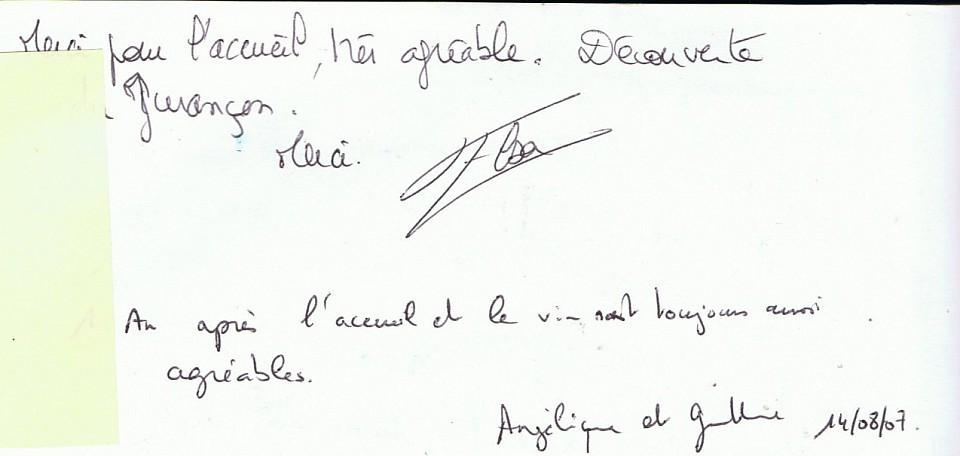 Merci pour l'accueil, très agréable. Découverte
Jurançon.
Merci.
An après l'accueil et le vin sont toujours aussi
agréables.
Angélique et Guillaume 14/08/07.